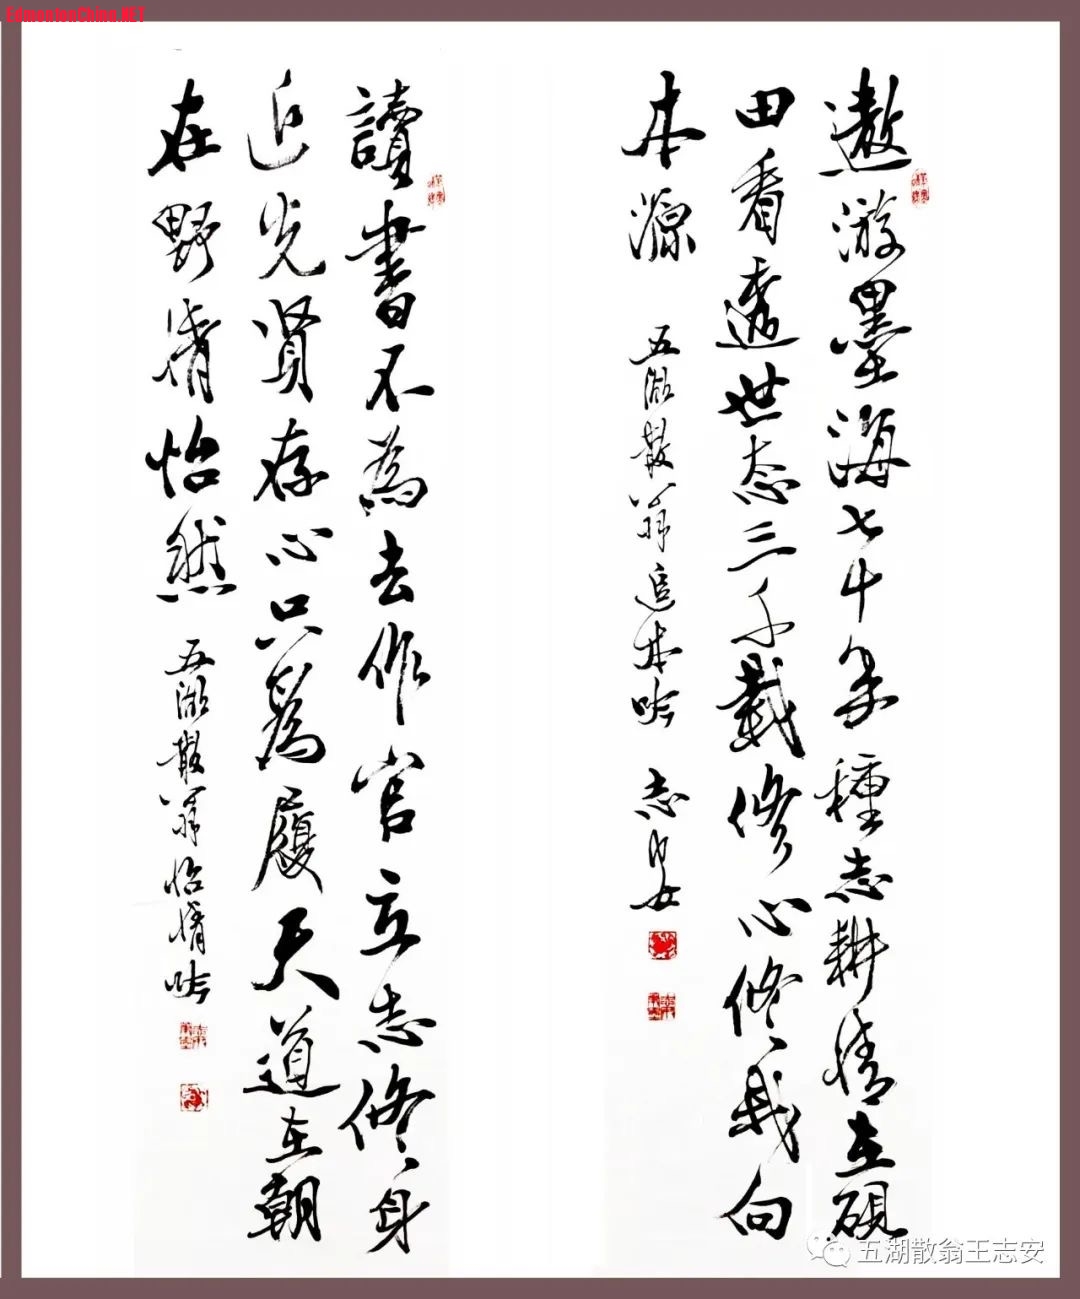 EdmontonChina.NET
遨游墨海七十年種志耕情在硯
田看透世态三千載修心修我向
本源
五湖散翁追本吟 志安
讀書不為去作官立志修身
追先贤存心只為履天道在朝
在野情怡然
五湖散翁怡情吟
五湖散翁王志安